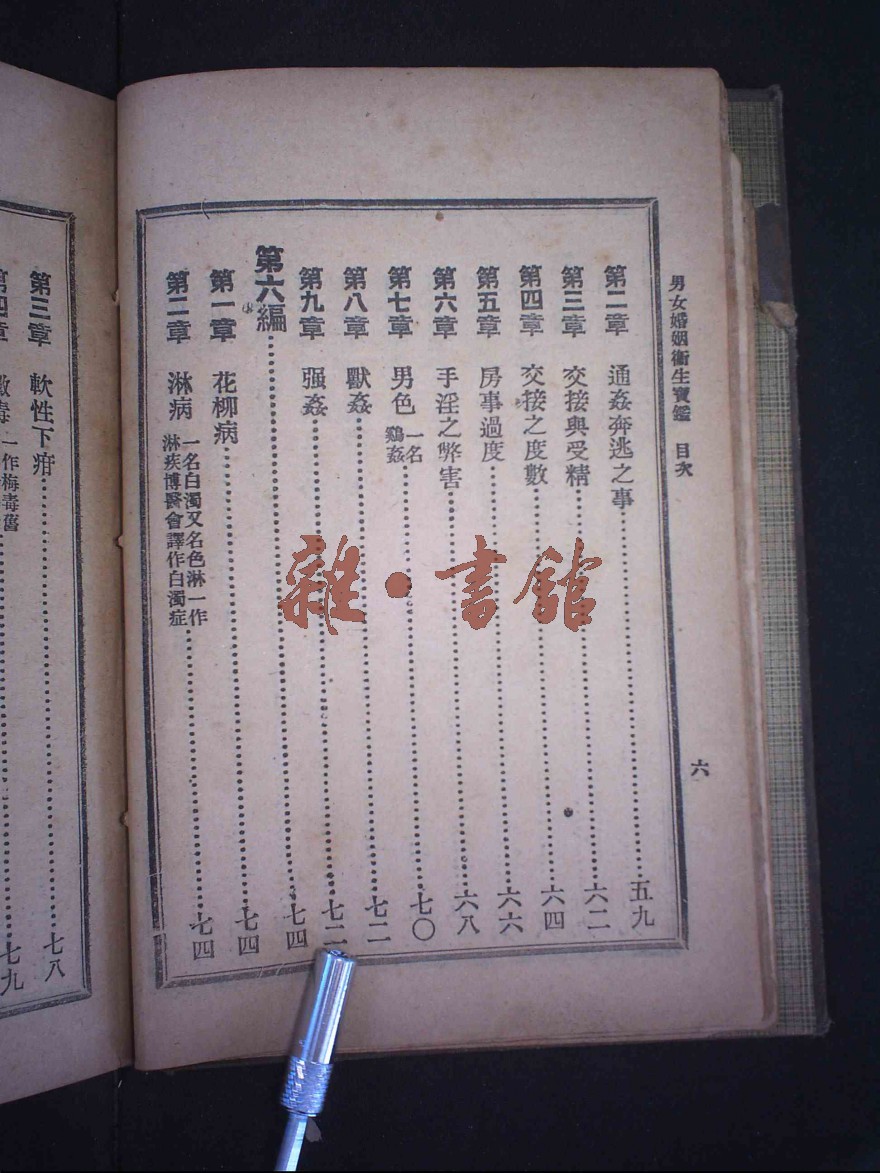 男女婚姻衞生寶鑑 目次
六
第二章 通姦奔逃之事 五九
第三章 交接與受精 六二
第四章 交接之度數 六四
第五章 房事過度 六六
第六章 手淫之弊害 六八
第七章 男色 一名鷄姦 七〇
第八章 獸姦 七二
第九章 强姦 七二
第六編 七四
第一章 花柳病 七四
第二章 淋病 一名白濁又名色淋一作淋疾博醫會譯作白濁症 七四
第三章 軟性下疳 七八
第四章 黴毒 一作梅毒舊 七九
雜·書館